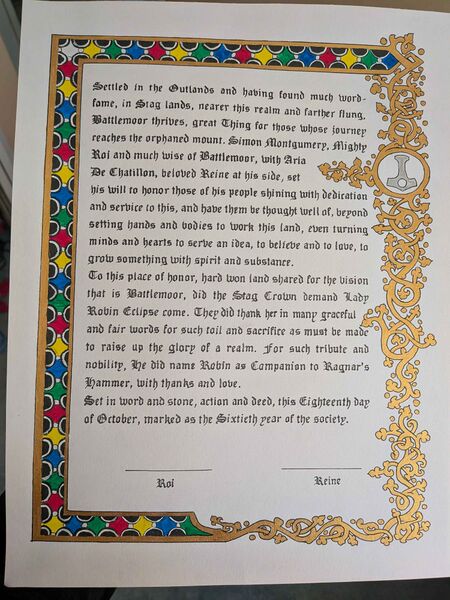 Settled in the Outlands and having found much word-
fame, in Stag lands, nearer this realm and farther flung,
Battlemoor thrives, great Thing for those whose journey
reaches the orphaned mount. Simon Montgumery, Mighty
Roi and much wise of Battlemoor, with Aria
De Chatillon, beloved Reine at his side, set
his will to honor those of his people shining with dedication
and service to this, and have them be thought well of, beyond
setting hands and bodies to work this land, even turning
minds and hearts to serve an idea, to believe and to love, to
grow something with spirit and substance.
To this place of honor, hard won land shared for the vision
that is Battlemoor, did the Stag Crown demand Lady
Robin Eclipse come. They did thank her in many graceful
and fair words for such toil and sacrifice as must be made
to raise up the glory of a realm. For such tribute and
nobility, He did name Robin as Companion to Ragnar's
Hammer, with thanks and love.
Set in word and stone, action and deed, this Eighteenth day
of October, marked as the Sixtieth year of the society.
Roi
Reine